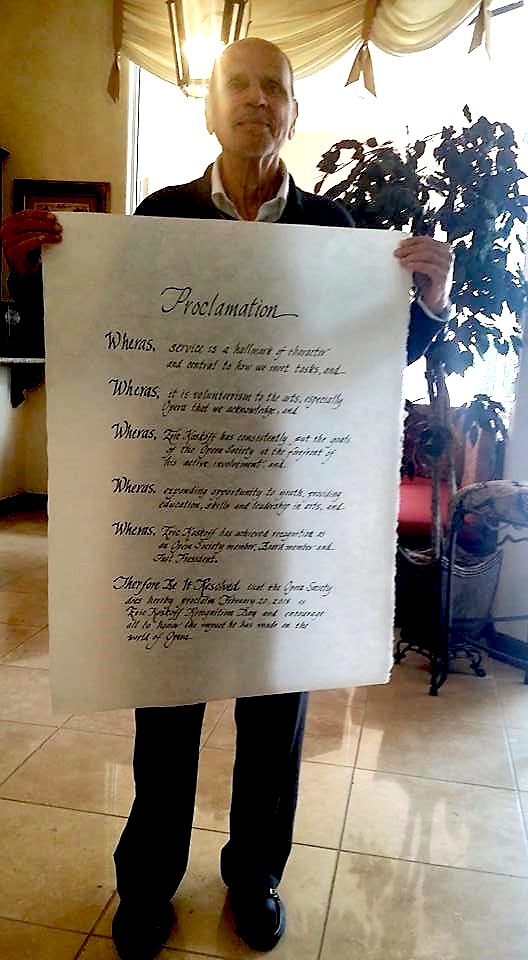 Proclamation
Wheras, service is a hallmark of character
and central to how we meet tasks, and
Wheras, it is volunteerism to the arts, especially
Opera that we acknowledge, and
Wheras, Eric Koskoff has consistently put the goals
of the Opera Society at the forefront of
his active involvement, and
Wheras, expanding opportunity to youth, providing
education, skills and leadership in arts, and
Wheras, Eric Koskoff has achieved recognition as
an Opera Society member, Board member and
Past President.
Therfore Be It Resolved that the Opera Society
does hereby proclaim February 20, 2018 is
Eric Koskoff Recognition Day and encourage
all to honor the impact he has made on the
world of Opera